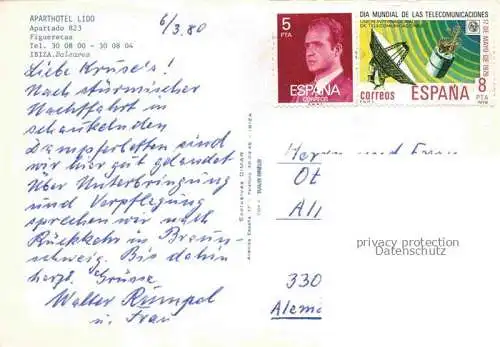 APARTHOTEL LIDO
Apartado 823
Figueretas
Tel. 30 08 00 - 30 08 04
IBIZA. Baleares
6/3.80
Liebe Kruse's!
Nach stürmischer
Nachtfahrt in
schaukelnden
Dampferbetten sind
wir hier gut gelandet
Über Unterbringung
und Verpflegung
sprechen wir nach
Rückkehr in Braun-
schweig. Bis dahin
herzl. Grüsse
Walter Rümpel
u. Frau
5
PTA
ESPAÑA
CORREOS
DIA MUNDIAL DE LAS TELECOMUNICACIONES
17 DE MAYO DE 1979
correos
ESPAÑA
8
PTA
Exclusivas DIMAR
Herrn und Frau
Ot
All
330
Alema
privacy protection
Datenschutz